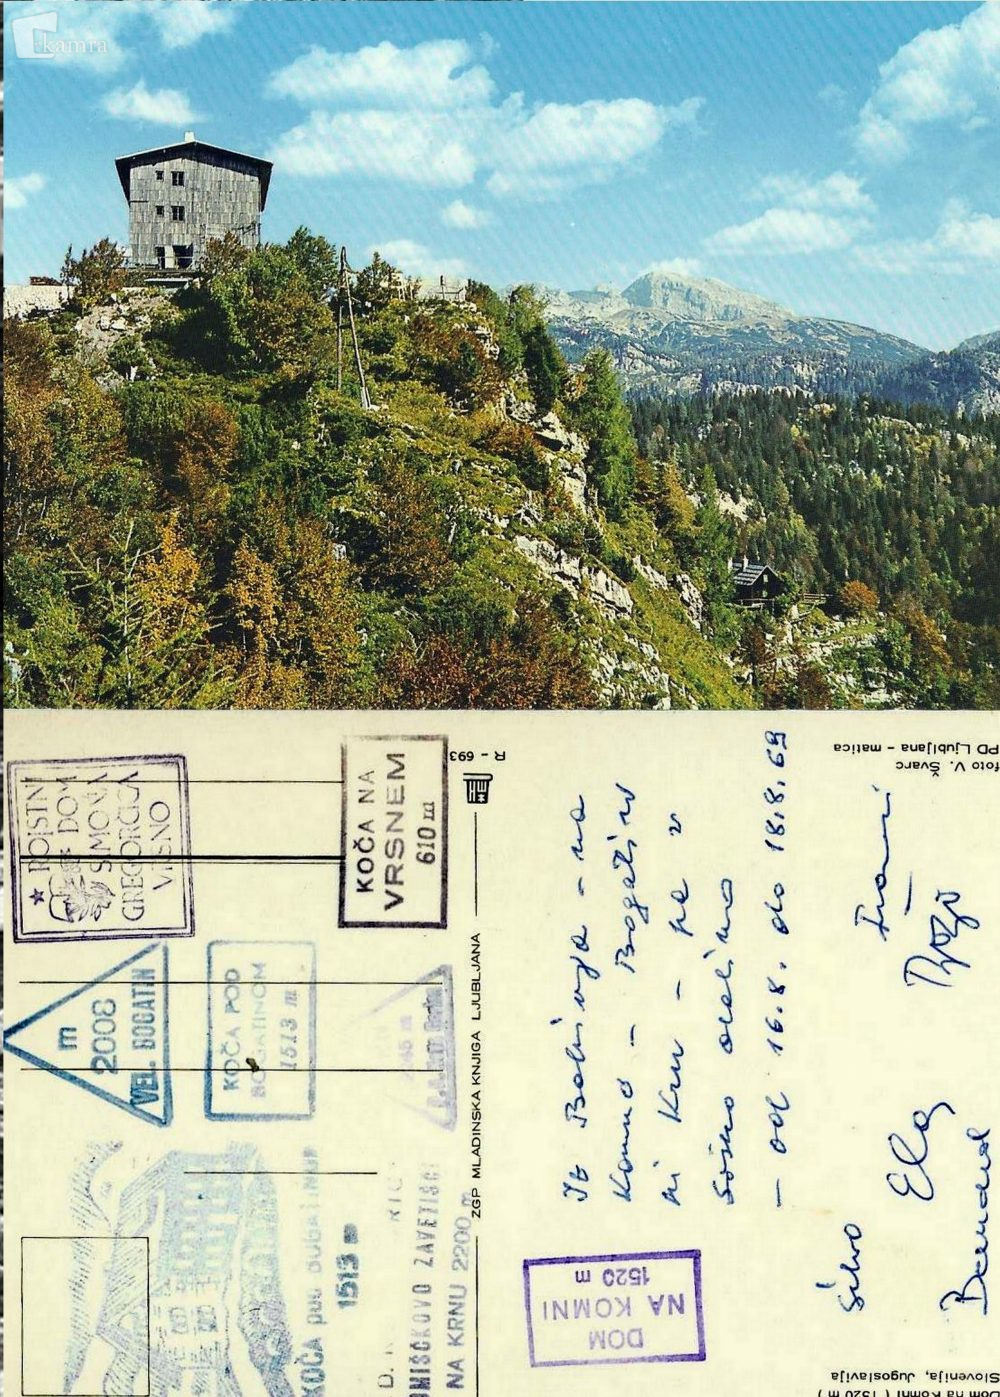 kamra
R - 693
POISTNI
DOM
SIMONA
GREGORČIČA
VRSNO
KOČA NA
VRSNEM
610 m
m
2008
VEL. BOGATIN
KOČA POD
BOGATINOM
1513 m
KOČA pod BOGATINOM
1513 m
ZAVETIŠČE
NA KRNU 2200 m
ZGP MLADINSKA KNJIGA LJUBLJANA
Iz Bohinja - na
Komno - Bogatin
in Krn - pa v
Soško dolino
- od 16.8. do 18.8.69
Silvo
Ela
DOM
NA KOMNI
1520 m
foto V. Švarc
PD Ljubljana - matica
Dom na Komni (1520 m)
Slovenija, Jugoslavija